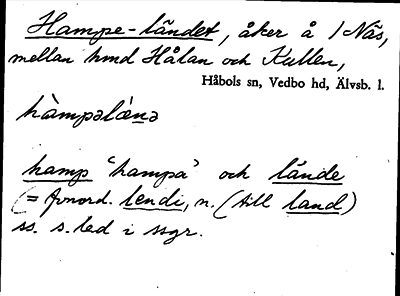 Hampe-ländet, åker å 1 Näs,
mellan hmd Hålan och Kullen,
Håbols sn, Vedbo hd, Älvsb. l.
hàmpəlɛ́nə
hamp "hampa" och lände
(= fvnord. lendi, n. (till land)
ss. s. led i ssgr.